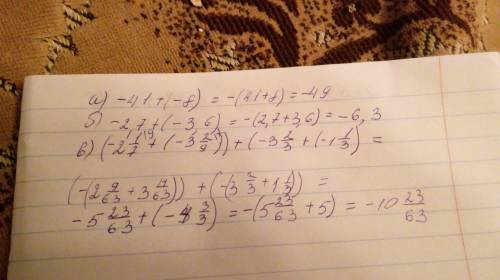 а) -41+(-8) = -(41+8) = -49
б) -2,7+(-3,6) = -(2,7+3,6) = -6,3
в) (-2 1/7 + (-3 2/9)) + (-3 2/3 + (-1 1/3) =
(-(2 9/63 + 3 14/63)) + (-(3 2/3 + 1 1/3)) =
-5 23/63 + (-4 3/3) = -(5 23/63 + 5) = -10 23/63